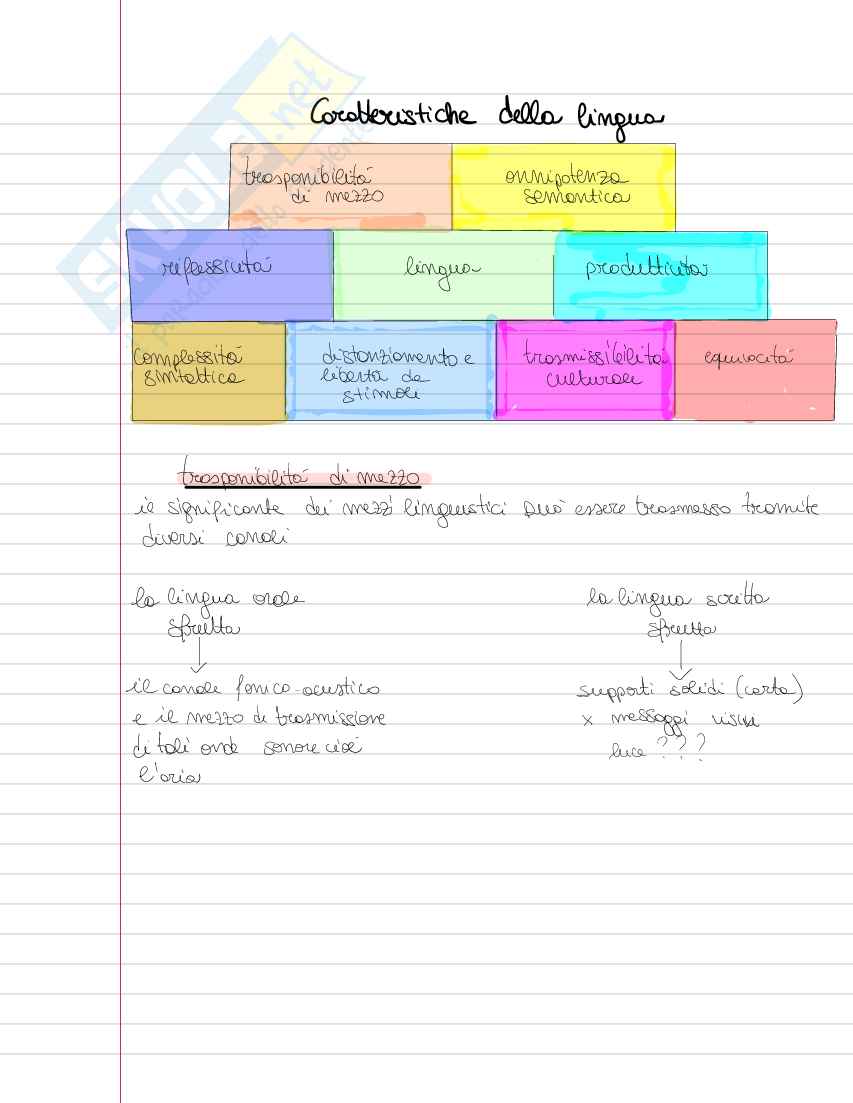 Caratteristiche della lingua
trasponibilità di mezzo
onnipotenza semantica
riflessività
lingua
produttività
complessità sintattica
distanziamento e libertà da stimoli
trasmissibilità culturale
equivocità
trasponibilità di mezzo
il significante dei mezzi linguistici può essere trasmesso tramite
diversi canali
la lingua orale
sfrutta
la lingua scritta
sfrutta
il canale fonico-acustico
e il mezzo di trasmissione
di tali onde sonore cioè
l'aria
supporti solidi (carta)
x messaggi visivi
luce ???
SKUOLA.net